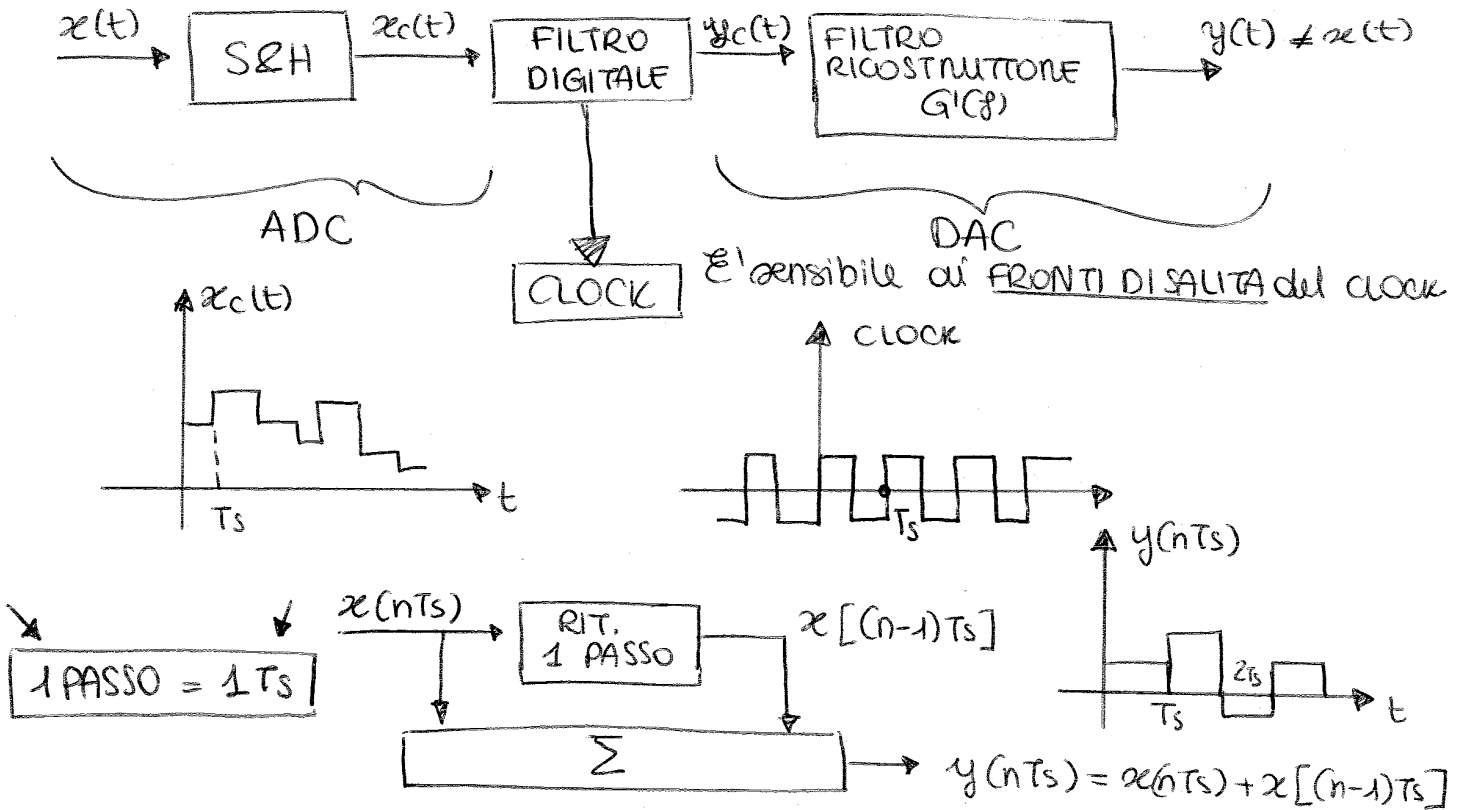 x(t)
S&H
xc(t)
FILTRO
DIGITALE
yc(t)
FILTRO
RICOSTRUTTORE
G'(f)
y(t) ≠ x(t)
ADC
DAC
CLOCK
E' sensibile ai FRONTI DI SALITA del clock
xc(t)
Ts
t
CLOCK
Ts
1 PASSO = 1 Ts
x(nTs)
RIT.
1 PASSO
x[(n-1)Ts]
Σ
y(nTs) = x(nTs) + x[(n-1)Ts]
y(nTs)
Ts
2Ts
t